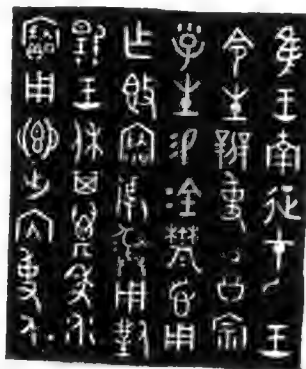 隹王南征才王
令生辨事公宗
小子生易金鬱鬯用
乍𣪘寶尊彝用對
揚王休其萬年永
寶用鄉出內事人